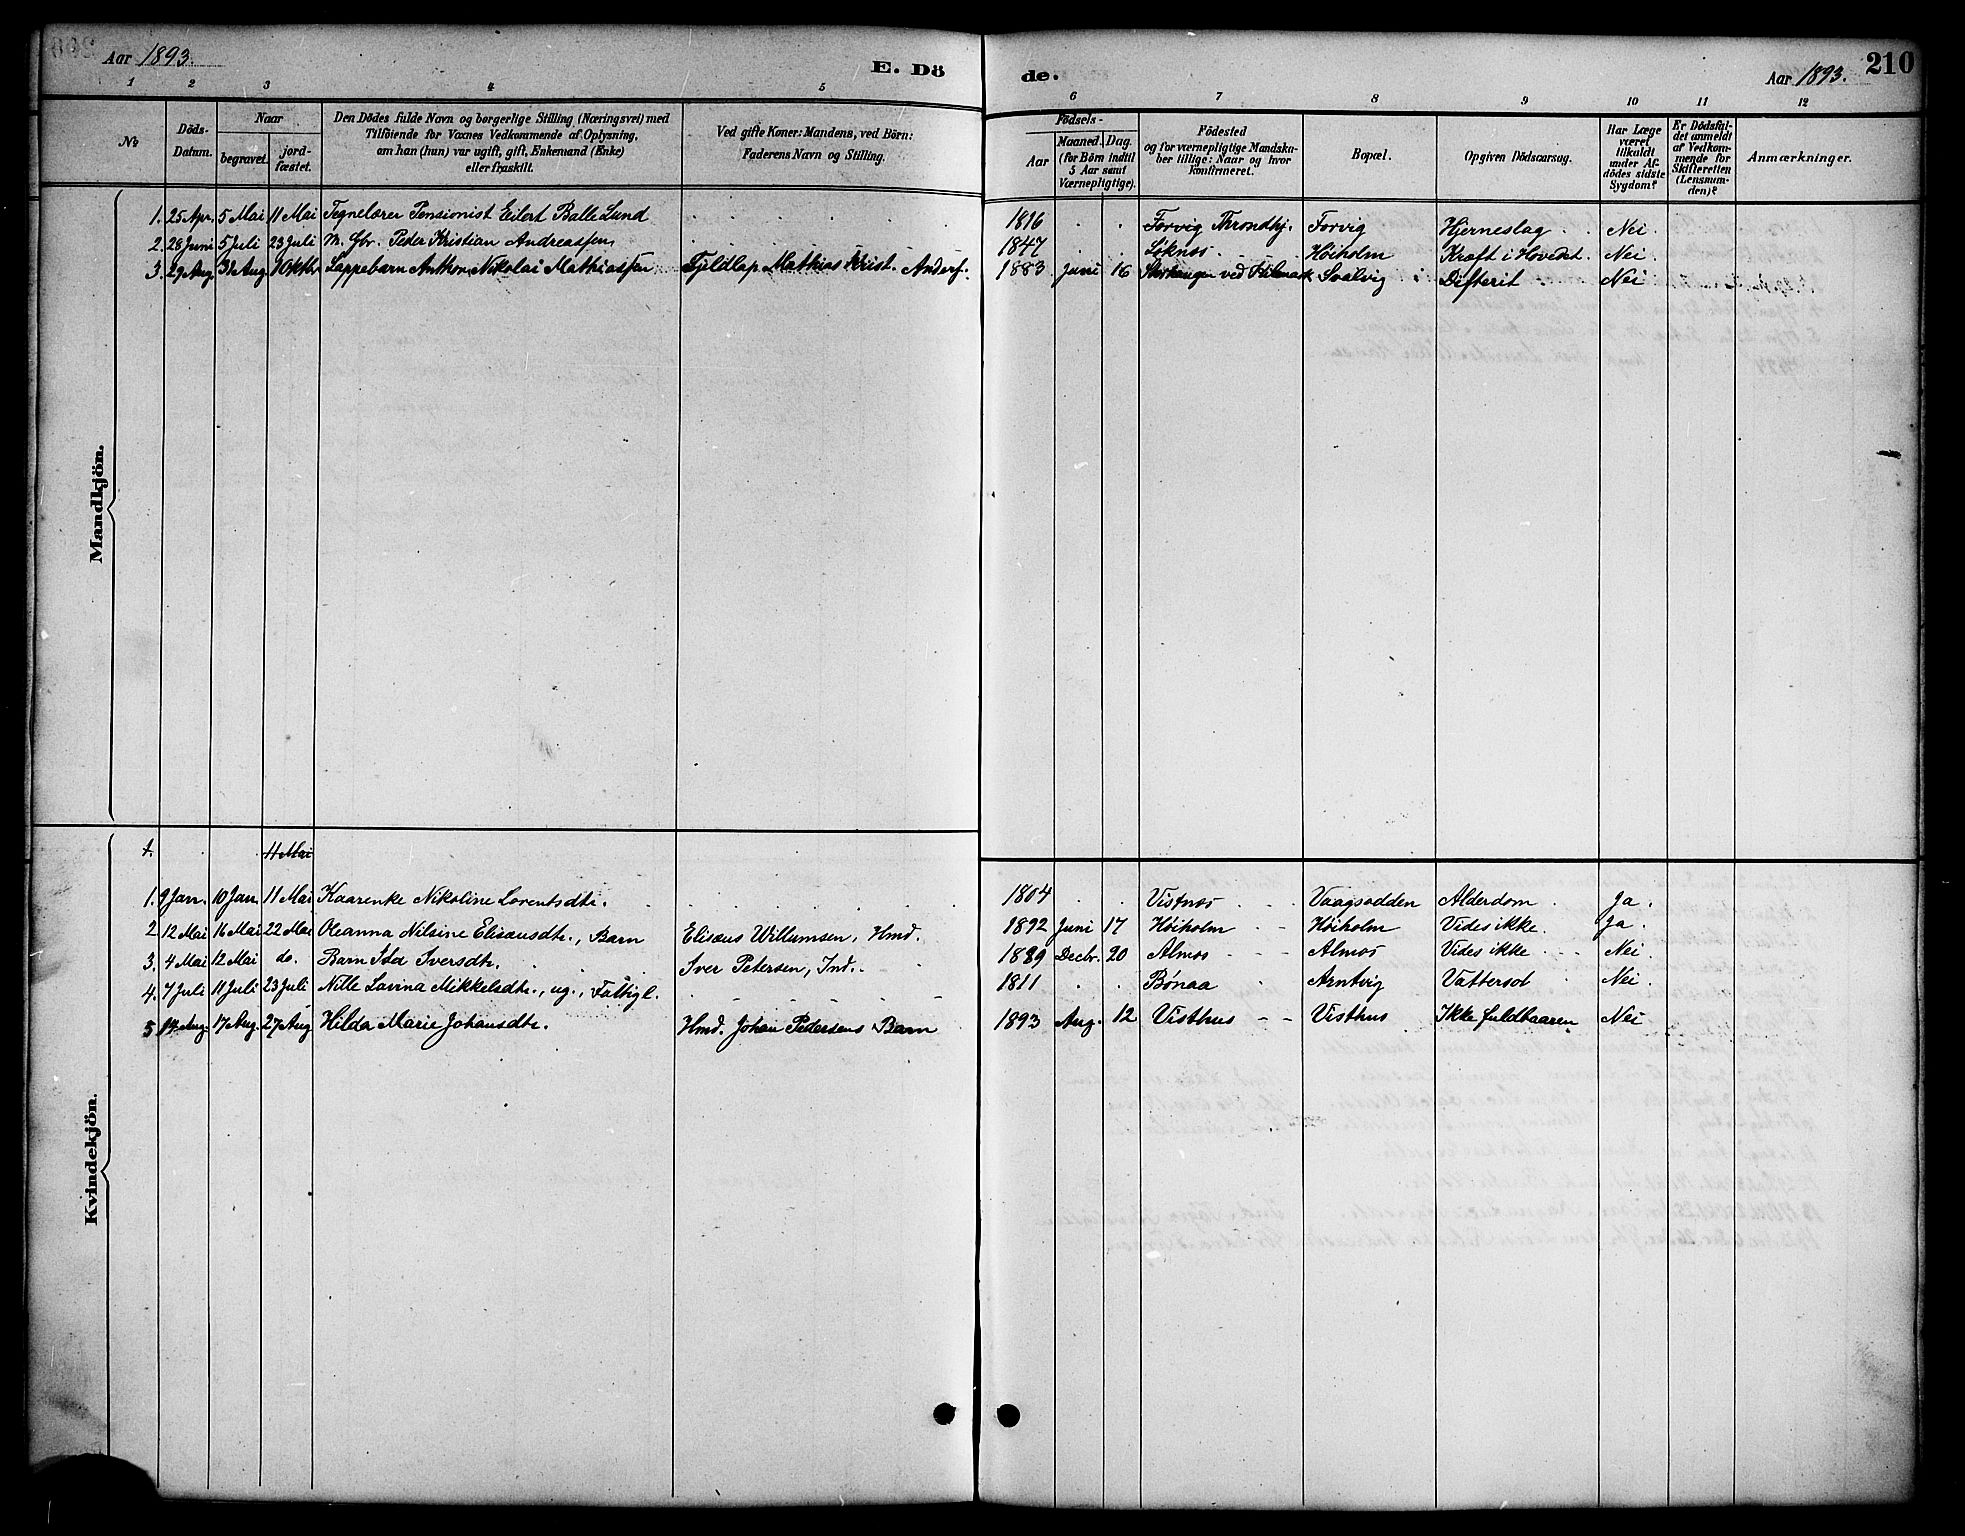 Aar 1893.
E. Dö
de.
Aar 1893.
210
1 2 3 4 5 6 7 8 9 10 11 12
No
Döds-Datum.
Naar
begravet.
jord-fæstet.
Den Dödes fulde Navn og borgerlige Stilling (Næringsvei) med
Tilföiende for Voxnes Vedkommende af Oplysning,
om han (hun) var ugift, gift, Enkemand (Enke)
eller fraskilt.
Ved gifte Koner: Mandens, ved Börn:
Faderens Navn og Stilling.
Födsels-
Aar
Maaned. Dag.
(for Börn indtil
5 Aar samt
Værnepligtige).
Födested
og for værnepligtige Mandska-
ber tillige: Naar og hvor
konfirmeret.
Bopæl.
Opgiven Dödsaarsag.
Har Læge
været
tilkaldt
under Af-
dödes sidste
Sygdom?
Er Dödsfal-
det anmeldt
af Vedkom-
mende for
Skifteretten
(Lensman-
den)?
Anmærkninger.
Mandkjön.
1. 25 Apr. 5 Mai 11 Mai Tegnelærer Pensionist Eilert Balle Lund 1816 Forvig Throndhj. Forvig Hjerneslag Nei
2. 28 Juni 5 Juli 23 Juli M. Gbr. Peder Kristian Andreassen 1847 Søknæs Høiholm Kræft i Hovedet. Nei.
3. 29 Aug. 31 Aug 1 Oktbr Lappebarn Anthon Nikolai Mathiassen Fjeldlap Mathias Krist. Anders. 1883 Juni 16 ved Svalvig Difterit Nei
Kvindekjön.
1. 11 Mai
1. 9 Jan. 10 Jan. 11 Mai Kaarenke Nikoline Lorentsdtr. 1804 Vistnæs Vaagsodden Alderdom Ja.
2 12 Mai 16 Mai 22 Mai Oleanna Nilsine Elisæusdtr., Barn Elisæus Willumsen, Hmd. 1892 Juni 17 Høiholm Høiholm Vides ikke. Ja.
3. 4 Mai 12 Mai do. Barn Ida Iversdtr. Iver Petersen, Ind. 1889 Decbr. 20 Almos Almos Vides ikke Nei.
4. 7 Juli 11 Juli 23 Juli Nille Lavina Mikkelsdtr., ug., Fattigl. 1811 Bønaa Arntvig Vattersot Nei.
5 14 Aug. 17 Aug. 27 Aug Hilda Marie Johansdtr. Hmd. Johan Pedersens Barn 1893 Aug. 12 Visthus Visthus Ikke fuldbaaren Nei